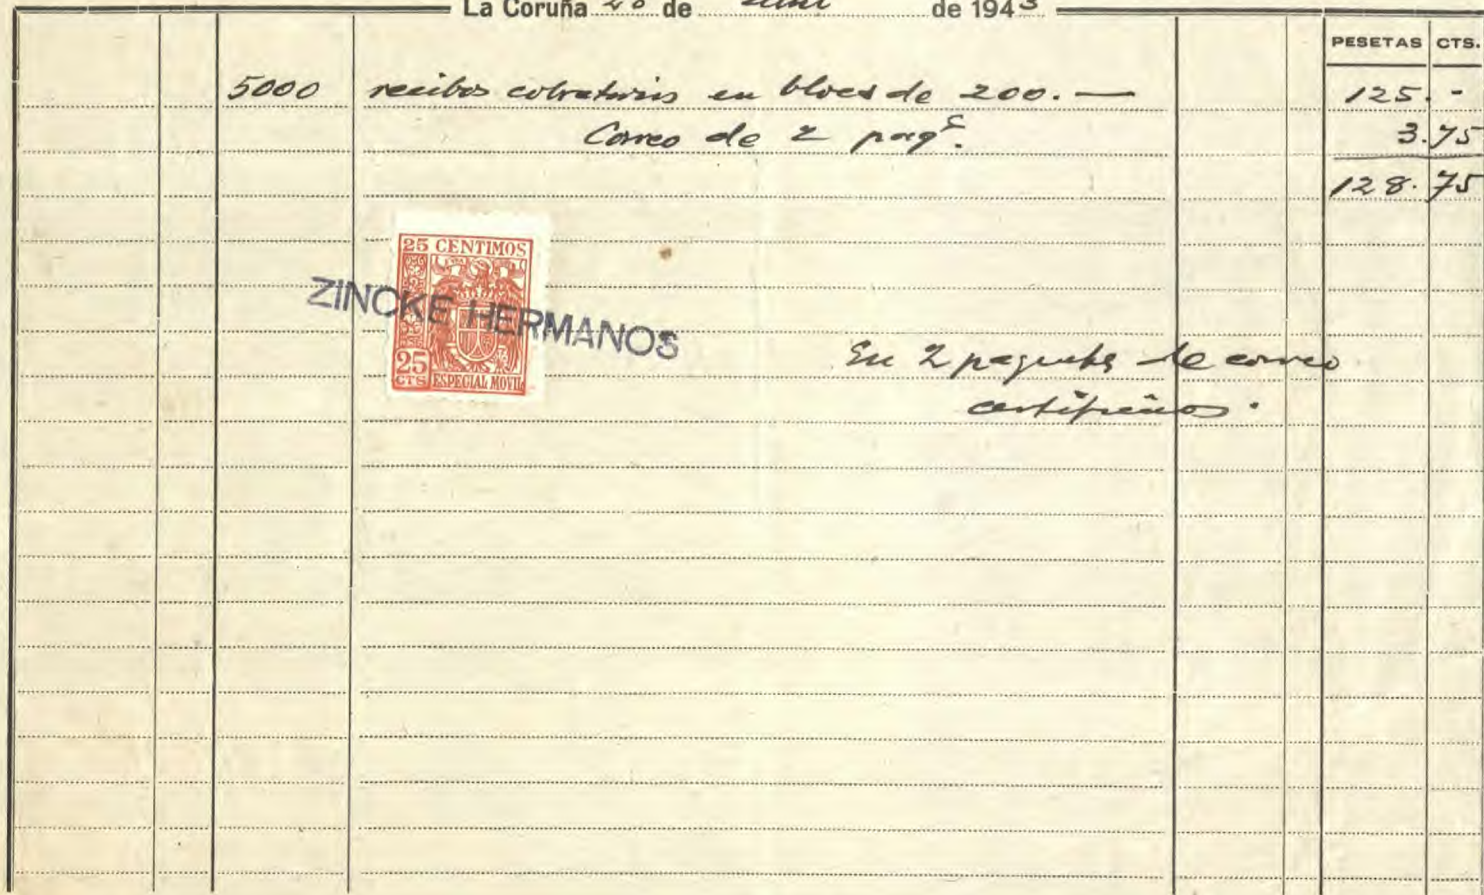 La Coruña 28 de de 1943
PESETAS CTS.
5000 recibos cobratorios en blocs de 200. — 125. -
Correo de 2 paqs. 3.75
128.75
25 CENTIMOS
ZINCKE HERMANOS
25 CTS ESPECIAL MOVIL
En 2 paquetes de correo
certificados.